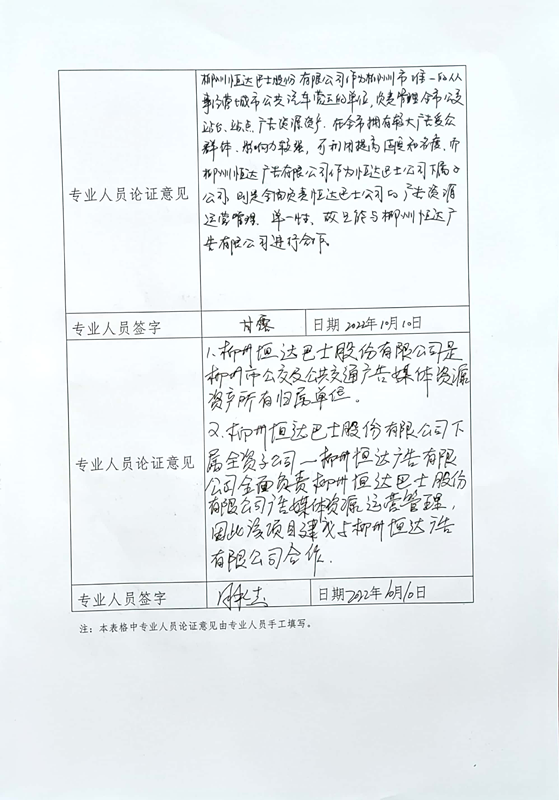 专业人员论证意见
柳州恒达巴士股份有限公司作为柳州市唯一的从
事经营城市公共汽车营运的单位，负责管理全市公交
站台、站点广告资源资产。在全市拥有较大广告受众
群体、影响力较强，可利用提高
柳州恒达广告有限公司作为恒达巴士公司下属子
公司，则是全面负责恒达巴士公司的广告资源
运营管理，单一性，故只能与柳州恒达广
告有限公司进行合作。
专业人员签字 甘露 日期 2022年10月10日
专业人员论证意见
1、柳州恒达巴士股份有限公司是
柳州市公交及公共交通广告媒体资源
资产所有归属单位。
2、柳州恒达巴士股份有限公司下
属全资子公司—柳州恒达广告有限
公司全面负责柳州恒达巴士股份
有限公司广告媒体资源运营管理，
因此该项目建议与柳州恒达广告
有限公司合作.
专业人员签字 日期 2022年10月10日
注：本表格中专业人员论证意见由专业人员手工填写。